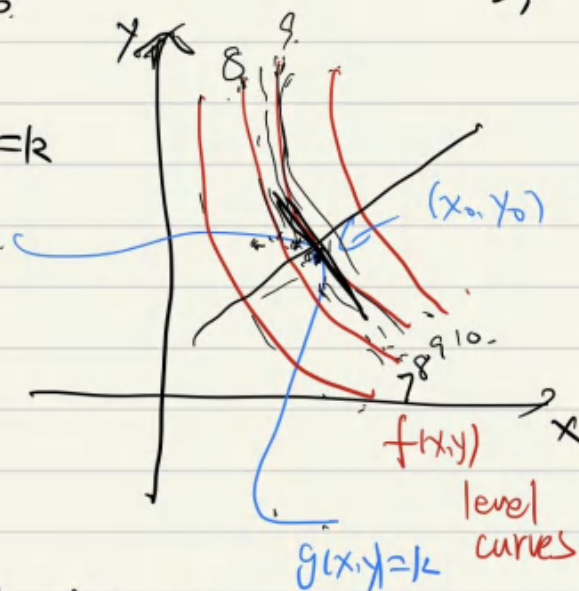 y
9.
8
=k
(x₀, y₀)
7 8 9 10.
x
f(x,y)
level
curves
g(x,y)=k